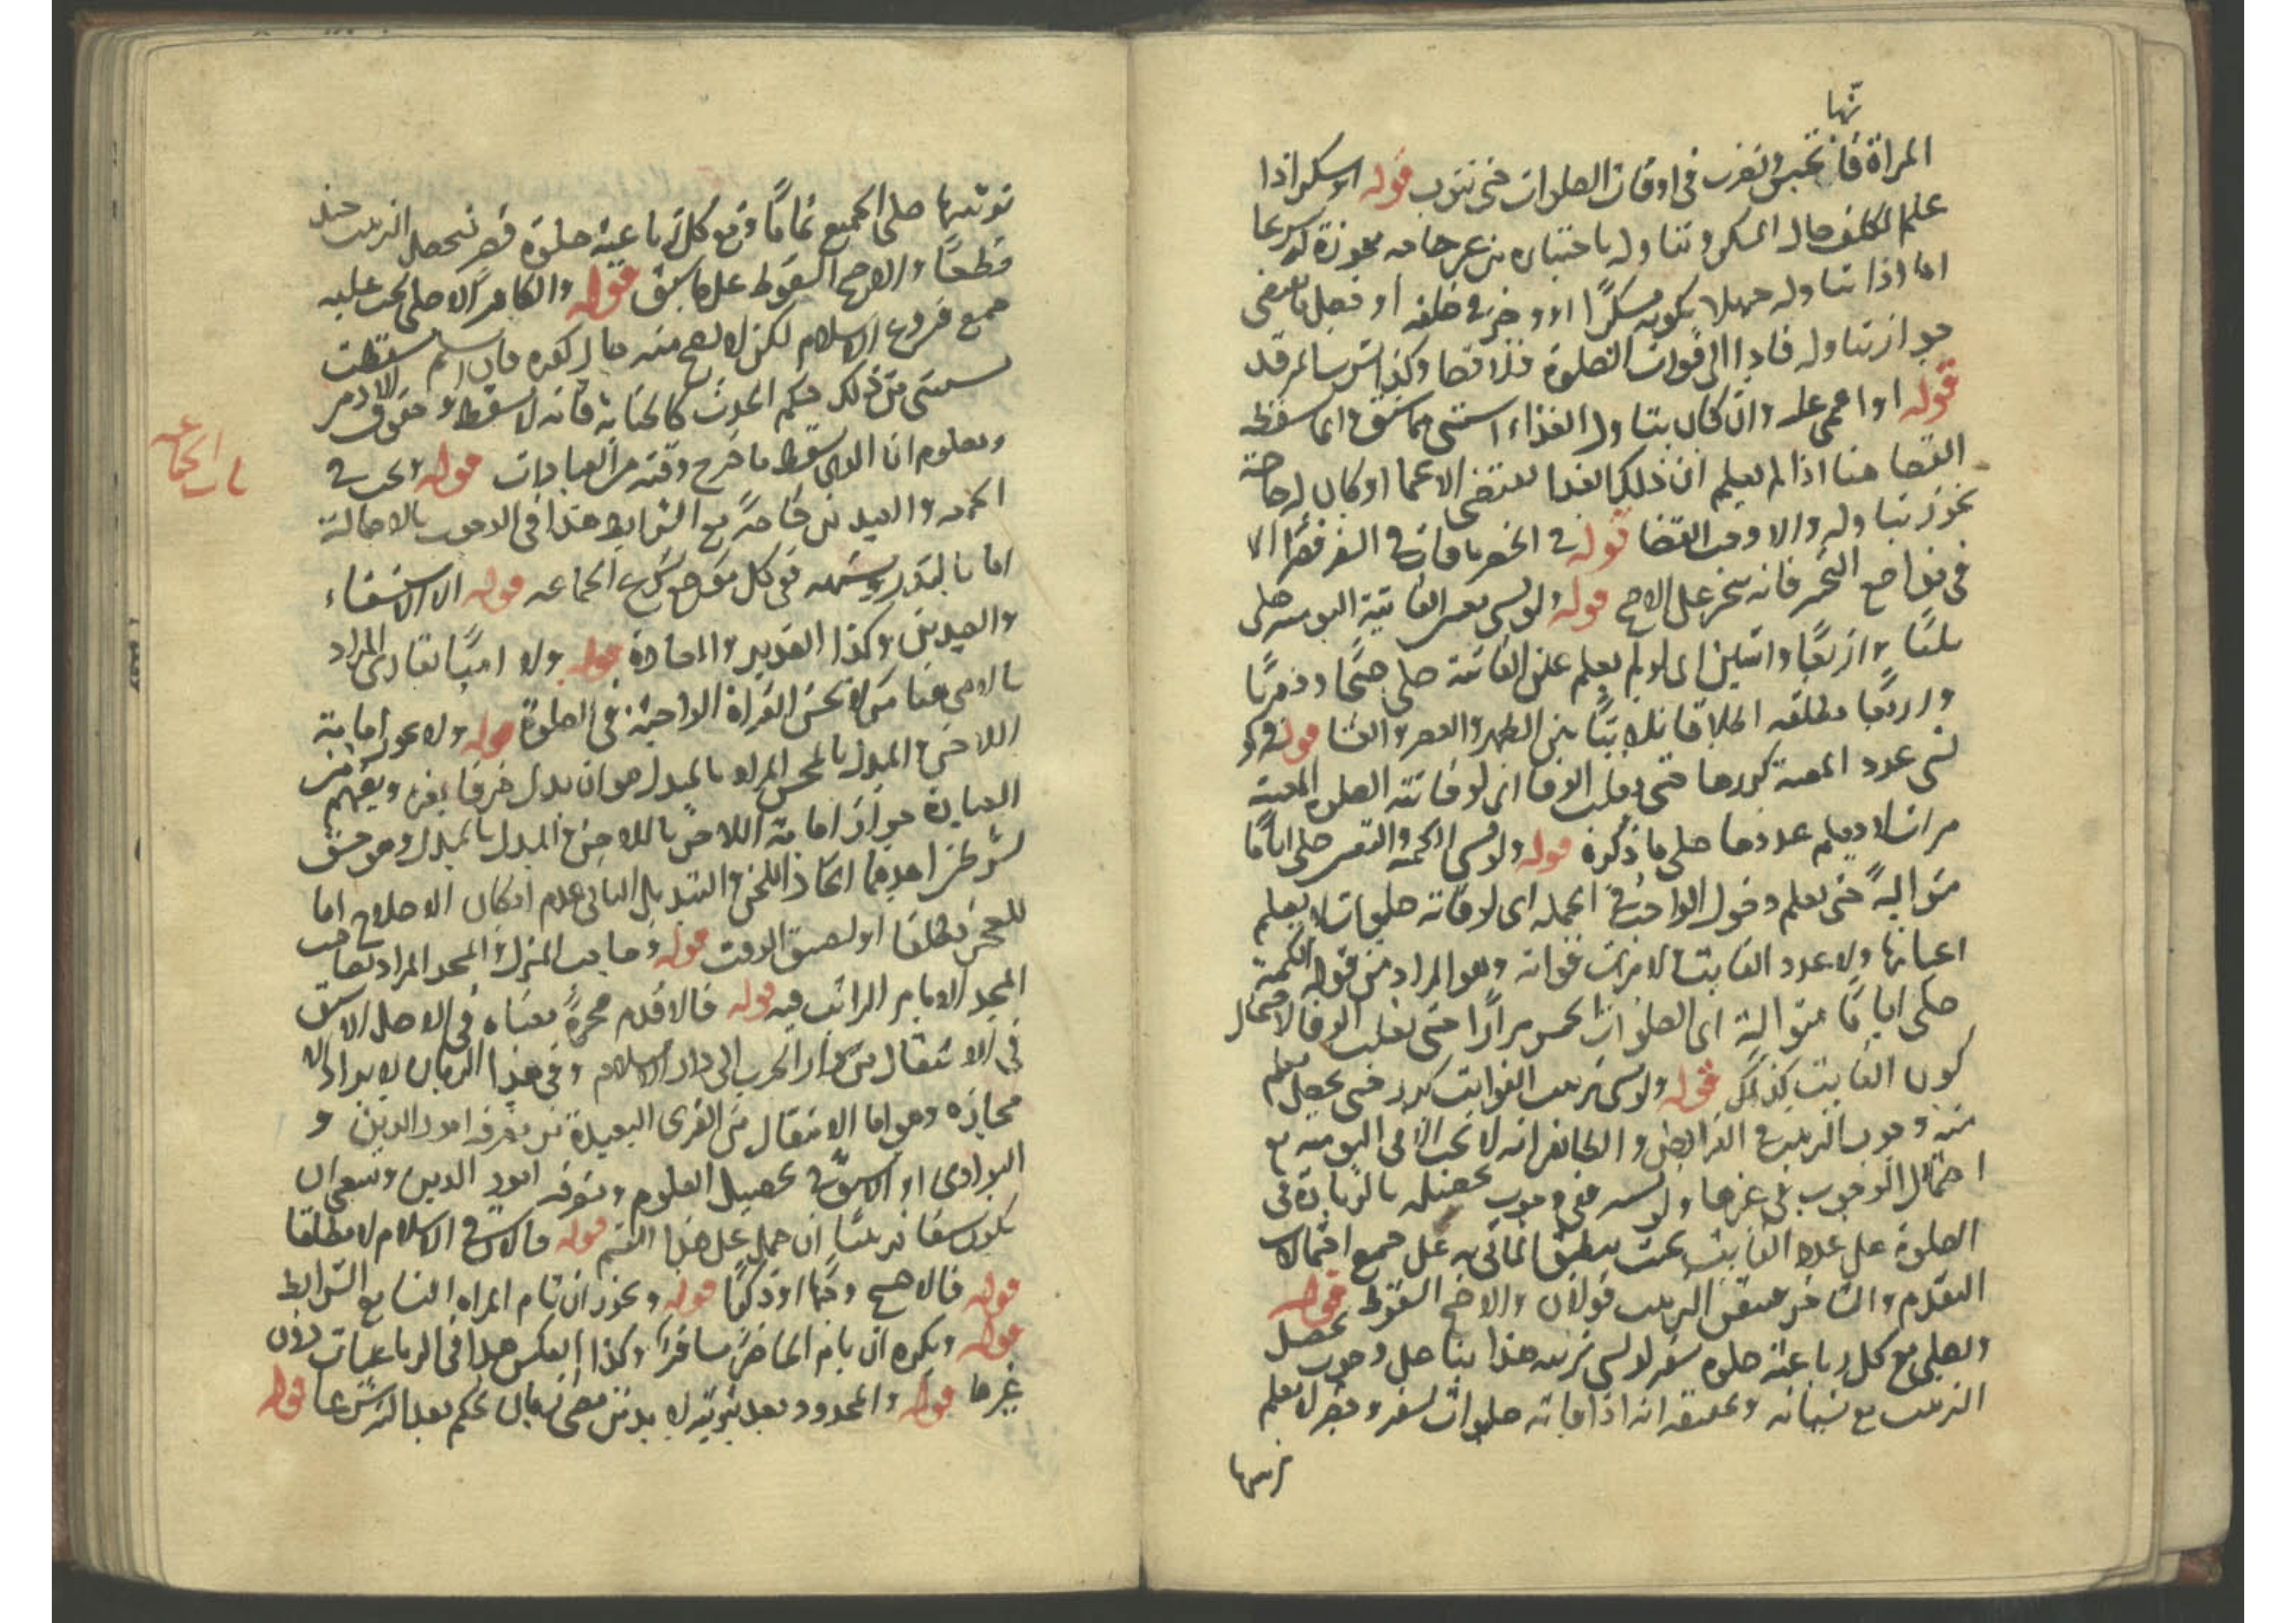 نّها
المراة فا تحبس وتضرب في اوقات الصلوات حتى تتوب قوله او سكر اذا
علم المكلف حال المسكر وتناوله باختياره من غير حاجة مجوزة له شرعا
اما اذا تناوله جهلا بكونه مسكرًا او وجر في حلقه او فعل ما يقتضي
جواز تناوله فادا الى فوات الصلوة فلا قضا وكذا شرب المرقد
قوله او اغمي عليه وان كان بتناول الغذاء استثنى مما سبق وانما سقط
القضا هنا اذا لم يعلم ان ذلك الغذا يقتضي الاغما او كان له حاجة
تجوز تناوله والا وجب القضا قوله في الحضر ما فات في السفر قصرًا الا
في مواضع التخير فانه يتخير على الاصح قوله ولو نسي تعيين الفايتة اليومية صلى
ثلثًا واربعًا واثنين اي لو لم يعلم عين الفائتة صلى صبحًا ومغربًا
واربعًا مطلقة اطلاقا ثلاثيًا بين الظهر والعصر والعشا قوله ولو
نسي عدد المعينة كررها حتى يغلب الوفا اي لو فاتته الصلوة المعينة
مرات لا يعلم عددها صلى ما ذكره قوله ولو نسي الكمية والتعيين صلى اياما
متوالية حتى يعلم دخول الواجب في الجملة اي لو فاته صلوات لا يعلم
اعيانها ولا عدد الفايت الا مرات فواته وهو المراد من قوله الكمية
صلى اياما متوالية اي الصلوات الخمس مرارًا حتى يغلب الوفا لاحتمال
كون الفايت كذلك قوله ولو نسي ترتيب الفوايت كرر حتى يحصله يعلم
منه وجوب الترتيب في الفرايض والظاهر انه لا يجب الا في اليومية مع
احتمال الوجوب في غيرها ولو نسيه ففي وجوب تحصيله بالزيادة في
الصلوة على عدد الفايت بحيث ينطبق الماتي به على جميع احتمالات
التقدم والتاخر متيقن الترتيب قولان والاصح السقوط قوله
ويصلي مع كل رباعية صلوة سفر لو نسي ترتيبه هذا بنا على وجوب تحصيل
الترتيب مع نسيانه وتحقيقه انه اذا فاته صلوات سفر وحضر لا يعلم
ترتيبها
ترتيبها صلى الجميع تمامًا ومع كل رباعية صلوة قصر ليحصل الترتيب حينئذ
قطعًا والاصح السقوط على ما سبق قوله والكافر الاصلي يجب عليه
جميع فروع الاسلام لكن لا تصح منه حال كفره فان اسلم سقطت
يستثنى من ذلك حكم الحدث كالجنابة فانه لا يسقط وحقوق الادمي
ومعلوم ان الذي يسقط ما خرج وقته من العبادات قوله وتجب في
باب الجماعة
الجمعة والعيدين خاصة مع الشرايط هذا في الوجوب بالاصالة
اما بالنذر وشبهه ففي كل موضع تشرع الجماعة قوله الا الاستسقاء
والعيدين وكذا الغدير والمعادة قوله ولا اميًا بقاري المراد
بالامي هنا من لا يحسن القراة الواجبة في الصلوة قوله ولا تجوز امامة
اللاحن المبدل بالمحسن المراد بالمبدل هو ان يبدل حرفا بغيره ويفهم من
العبارة جواز امامة اللاحن باللاحن والمبدل بالمبدل وهو حق
بشرطين احدهما اتحاد اللحن والتبديل الثاني عدم امكان الاصلاح اما
للعجز مطلقا او لضيق الوقت قوله وصاحب المنزل والمسجد المراد بصاحب
المسجد الامام الراتب فيه قوله فالاقدم هجرة معناه في الاصل الاسبق
في الانتقال من دار الحرب الى دار الاسلام وفي هذا الزمان لا يراد الا
مجازه وهو اما الانتقال من القرى البعيدة عن معرفة امور الدين و
البوادي او الاسبق في تحصيل العلوم ومعرفة امور الدين وينبغي ان
يكون سفا قرشيًا ان حمل على هذا القسم قوله فالاسن في الاسلام لا مطلقا
قوله فالاصبح وجهًا او ذكرًا قوله ويجوز ان تام المراه النسا مع الشرايط
قوله ويكره ان ياتم الحاضر مسافرًا وكذا العكس هذا في الرباعيات دون
غيرها قوله والمحدود بعد توبته لا بد من مضي زمان يحكم بعدالته شرعا قوله